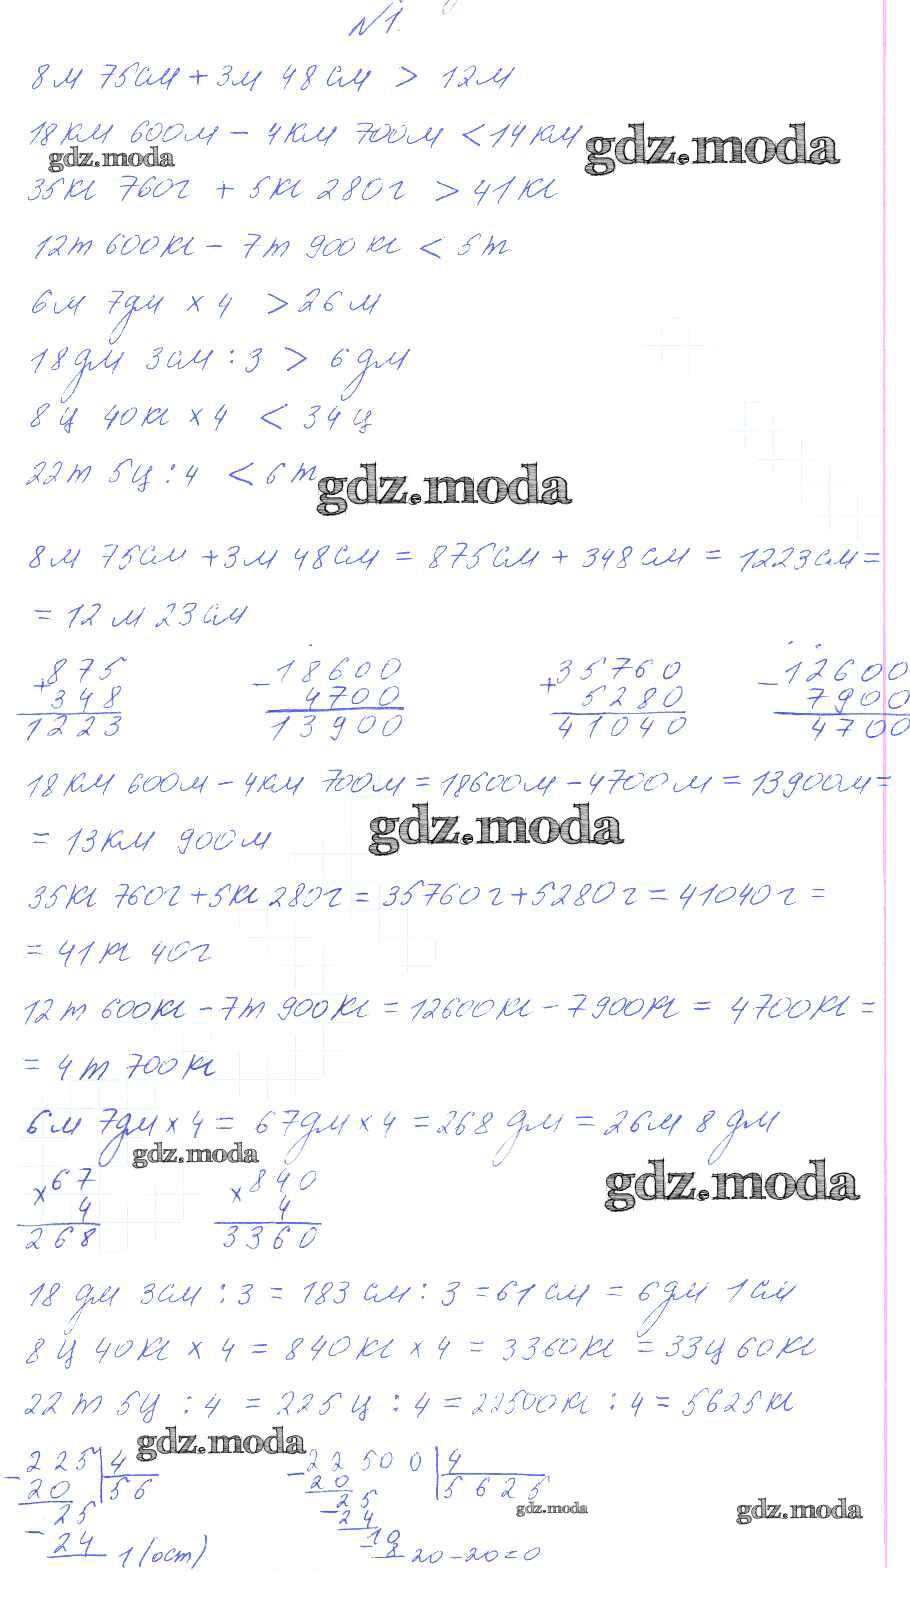 №1.
8м 75см + 3м 48см > 12м
18км 600м - 4км 700м < 14км
gdz.moda
gdz.moda
35кг 760г + 5кг 280г > 41кг
12т 600кг - 7т 900кг < 5т
6м 7дм × 4 > 26м
18дм 3см : 3 > 6дм
8ц 40кг × 4 < 34ц
22т 5ц : 4 < 6т
gdz.moda
8м 75см + 3м 48см = 875см + 348см = 1223см =
= 12м 23см
875 18600 35760 12600
+ 348 - 4700 + 5280 - 7900
1223 13900 41040 4700
18км 600м - 4км 700м = 18600м - 4700м = 13900м =
= 13км 900м
gdz.moda
35кг 760г + 5кг 280г = 35760г + 5280г = 41040г =
= 41кг 40г
12т 600кг - 7т 900кг = 12600кг - 7900кг = 4700кг =
= 4т 700кг
6м 7дм × 4 = 67дм × 4 = 268дм = 26м 8дм
gdz.moda
gdz.moda
× 67 × 840
4 4
268 3360
18дм 3см : 3 = 183см : 3 = 61см = 6дм 1см
8ц 40кг × 4 = 840кг × 4 = 3360кг = 33ц 60кг
22т 5ц : 4 = 225ц : 4 = 22500кг : 4 = 5625кг
gdz.moda
- 225 4 - 22500 4
20 56 20 5625
25 - 25
- 24 24
1(ост) 10
- 8
20-20=0
gdz.moda
gdz.moda